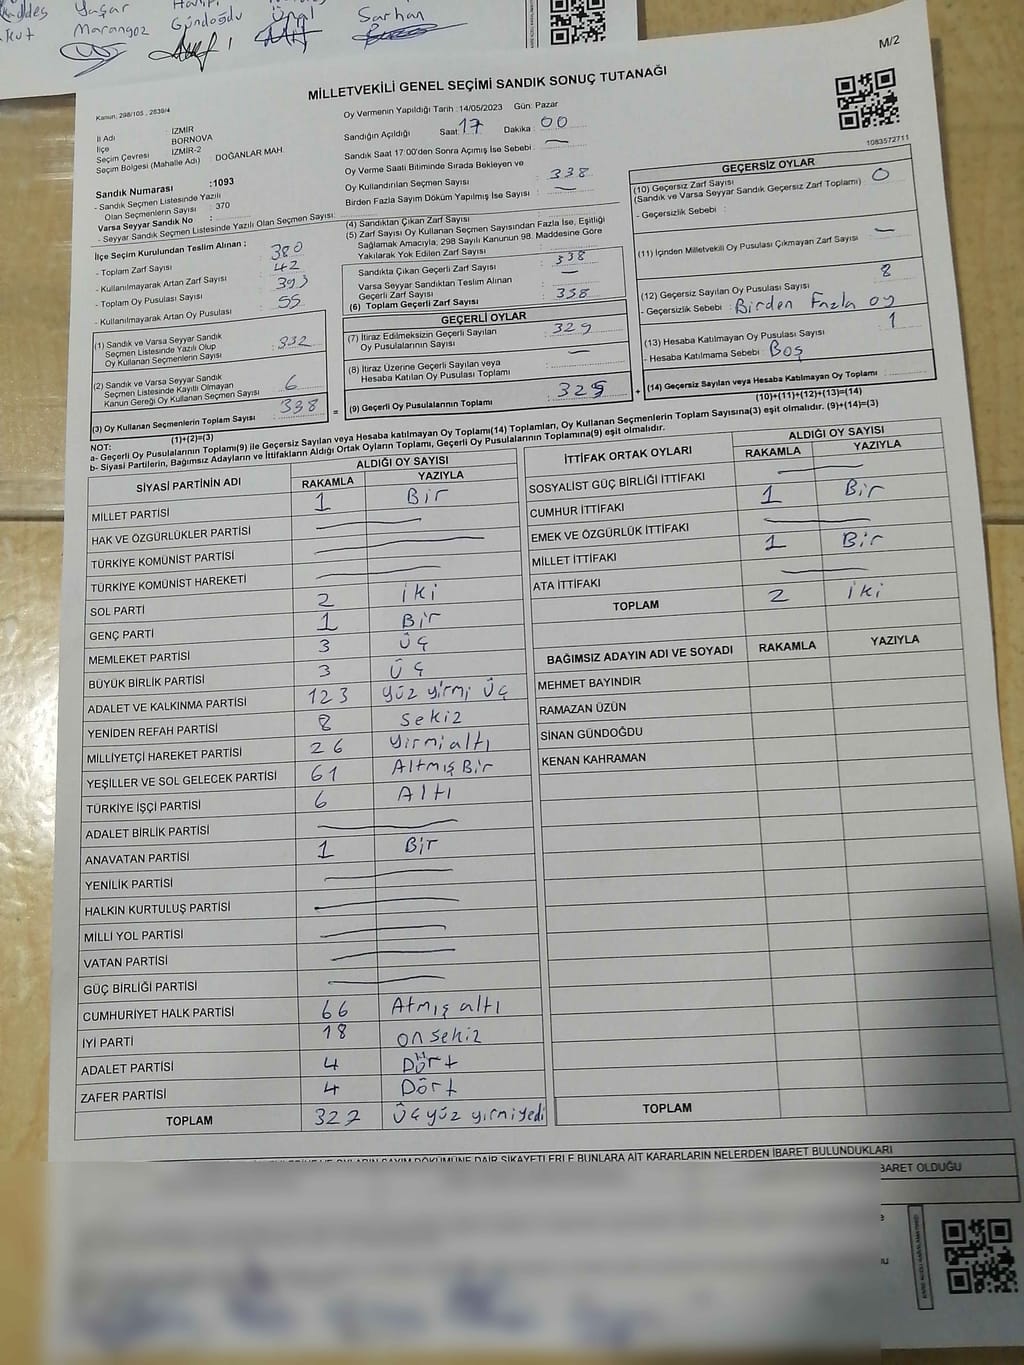 Yaşar
Marangoz
Gündoğdu
Ünal
Sarhan
M/2
MİLLETVEKİLİ GENEL SEÇİMİ SANDIK SONUÇ TUTANAĞI
Kanun, 298/105 , 2839/4
İl Adı : İZMİR
İlçe BORNOVA
Seçim Çevresi İZMİR-2
Seçim Bölgesi (Mahalle Adı) : DOĞANLAR MAH.
Sandık Numarası :1093
- Sandık Seçmen Listesinde Yazılı
Olan Seçmenlerin Sayısı : 370
Varsa Seyyar Sandık No :
- Seyyar Sandık Seçmen Listesinde Yazılı Olan Seçmen Sayısı:
Oy Vermenin Yapıldığı Tarih :14/05/2023 Gün: Pazar
Sandığın Açıldığı Saat: 17 Dakika : 00
Sandık Saat 17:00'den Sonra Açımış İse Sebebi : —
Oy Verme Saati Bitiminde Sırada Bekleyen ve
Oy Kullandırılan Seçmen Sayısı : 338
Birden Fazla Sayım Döküm Yapılmış İse Sayısı : —
1083572711
İlçe Seçim Kurulundan Teslim Alınan :
- Toplam Zarf Sayısı : 380
- Kullanılmayarak Artan Zarf Sayısı : 42
- Toplam Oy Pusulası Sayısı : 393
- Kullanılmayarak Artan Oy Pusulası : 55
(1) Sandık ve Varsa Seyyar Sandık
Seçmen Listesinde Yazılı Olup
Oy Kullanan Seçmenlerin Sayısı : 332
(2) Sandık ve Varsa Seyyar Sandık
Seçmen Listesinde Kayıtlı Olmayan
Kanun Gereği Oy Kullanan Seçmen Sayısı : 6
(3) Oy Kullanan Seçmenlerin Toplam Sayısı : 338
(1)+(2)=(3)
(4) Sandıktan Çıkan Zarf Sayısı :
(5) Zarf Sayısı Oy Kullanan Seçmen Sayısından Fazla İse, Eşitliği
Sağlamak Amacıyla, 298 Sayılı Kanunun 98. Maddesine Göre
Yakılarak Yok Edilen Zarf Sayısı :
Sandıkta Çıkan Geçerli Zarf Sayısı : 338
Varsa Seyyar Sandıktan Teslim Alınan
Geçerli Zarf Sayısı : —
(6) Toplam Geçerli Zarf Sayısı : 338
GEÇERLİ OYLAR
(7) İtiraz Edilmeksizin Geçerli Sayılan
Oy Pusulalarının Sayısı : 329
(8) İtiraz Üzerine Geçerli Sayılan veya
Hesaba Katılan Oy Pusulası Toplamı : —
(9) Geçerli Oy Pusulalarının Toplamı : 329
GEÇERSİZ OYLAR
(10) Geçersiz Zarf Sayısı : 0
(Sandık ve Varsa Seyyar Sandık Geçersiz Zarf Toplamı)
- Geçersizlik Sebebi :
(11) İçinden Milletvekili Oy Pusulası Çıkmayan Zarf Sayısı : —
(12) Geçersiz Sayılan Oy Pusulası Sayısı : 8
- Geçersizlik Sebebi : Birden Fazla oy
(13) Hesaba Katılmayan Oy Pusulası Sayısı : 1
- Hesaba Katılmama Sebebi : Boş
(14) Geçersiz Sayılan veya Hesaba Katılmayan Oy Toplamı :
(10)+(11)+(12)+(13)=(14)
NOT:
a- Geçerli Oy Pusulalarının Toplamı(9) ile Geçersiz Sayılan veya Hesaba katılmayan Oy Toplamı(14) Toplamları, Oy Kullanan Seçmenlerin Toplam Sayısına(3) eşit olmalıdır. (9)+(14)=(3)
b- Siyasi Partilerin, Bağımsız Adayların ve İttifakların Aldığı Ortak Oyların Toplamı, Geçerli Oy Pusulalarının Toplamına(9) eşit olmalıdır.
SİYASİ PARTİNİN ADI ALDIĞI OY SAYISI
RAKAMLA YAZIYLA
MİLLET PARTİSİ 1 Bir
HAK VE ÖZGÜRLÜKLER PARTİSİ —
TÜRKİYE KOMÜNİST PARTİSİ —
TÜRKİYE KOMÜNİST HAREKETİ —
SOL PARTİ 2 iki
GENÇ PARTİ 1 Bir
MEMLEKET PARTİSİ 3 Üç
BÜYÜK BİRLİK PARTİSİ 3 Üç
ADALET VE KALKINMA PARTİSİ 123 yüz yirmi Üç
YENİDEN REFAH PARTİSİ 8 Sekiz
MİLLİYETÇİ HAREKET PARTİSİ 26 Yirmi altı
YEŞİLLER VE SOL GELECEK PARTİSİ 61 Altmış Bir
TÜRKİYE İŞÇİ PARTİSİ 6 Altı
ADALET BİRLİK PARTİSİ —
ANAVATAN PARTİSİ 1 Bir
YENİLİK PARTİSİ —
HALKIN KURTULUŞ PARTİSİ —
MİLLİ YOL PARTİSİ —
VATAN PARTİSİ —
GÜÇ BİRLİĞİ PARTİSİ —
CUMHURİYET HALK PARTİSİ 66 Atmış altı
İYİ PARTİ 18 on sekiz
ADALET PARTİSİ 4 Dört
ZAFER PARTİSİ 4 Dört
TOPLAM 327 Üç yüz yirmi yedi
İTTİFAK ORTAK OYLARI ALDIĞI OY SAYISI
RAKAMLA YAZIYLA
SOSYALİST GÜÇ BİRLİĞİ İTTİFAKI —
CUMHUR İTTİFAKI 1 Bir
EMEK VE ÖZGÜRLÜK İTTİFAKI —
MİLLET İTTİFAKI 1 Bir
ATA İTTİFAKI —
TOPLAM 2 iki
BAĞIMSIZ ADAYIN ADI VE SOYADI RAKAMLA YAZIYLA
MEHMET BAYINDIR
RAMAZAN ÜZÜN
SİNAN GÜNDOĞDU
KENAN KAHRAMAN
TOPLAM
OYLARIN SAYIM DÖKÜMÜNE DAİR ŞİKAYETLERLE BUNLARA AİT KARARLARIN NELERDEN İBARET BULUNDUKLARI
İBARET OLDUĞU